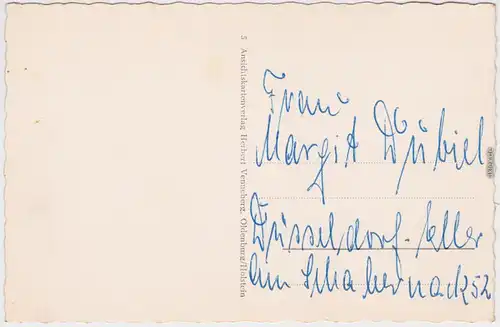 5 Ansichtskartenverlag Herbert Venneberg, Oldenburg/Holstein
Frau
Margit Dübiel
Düsseldorf-Eller
Am Schabernack 52